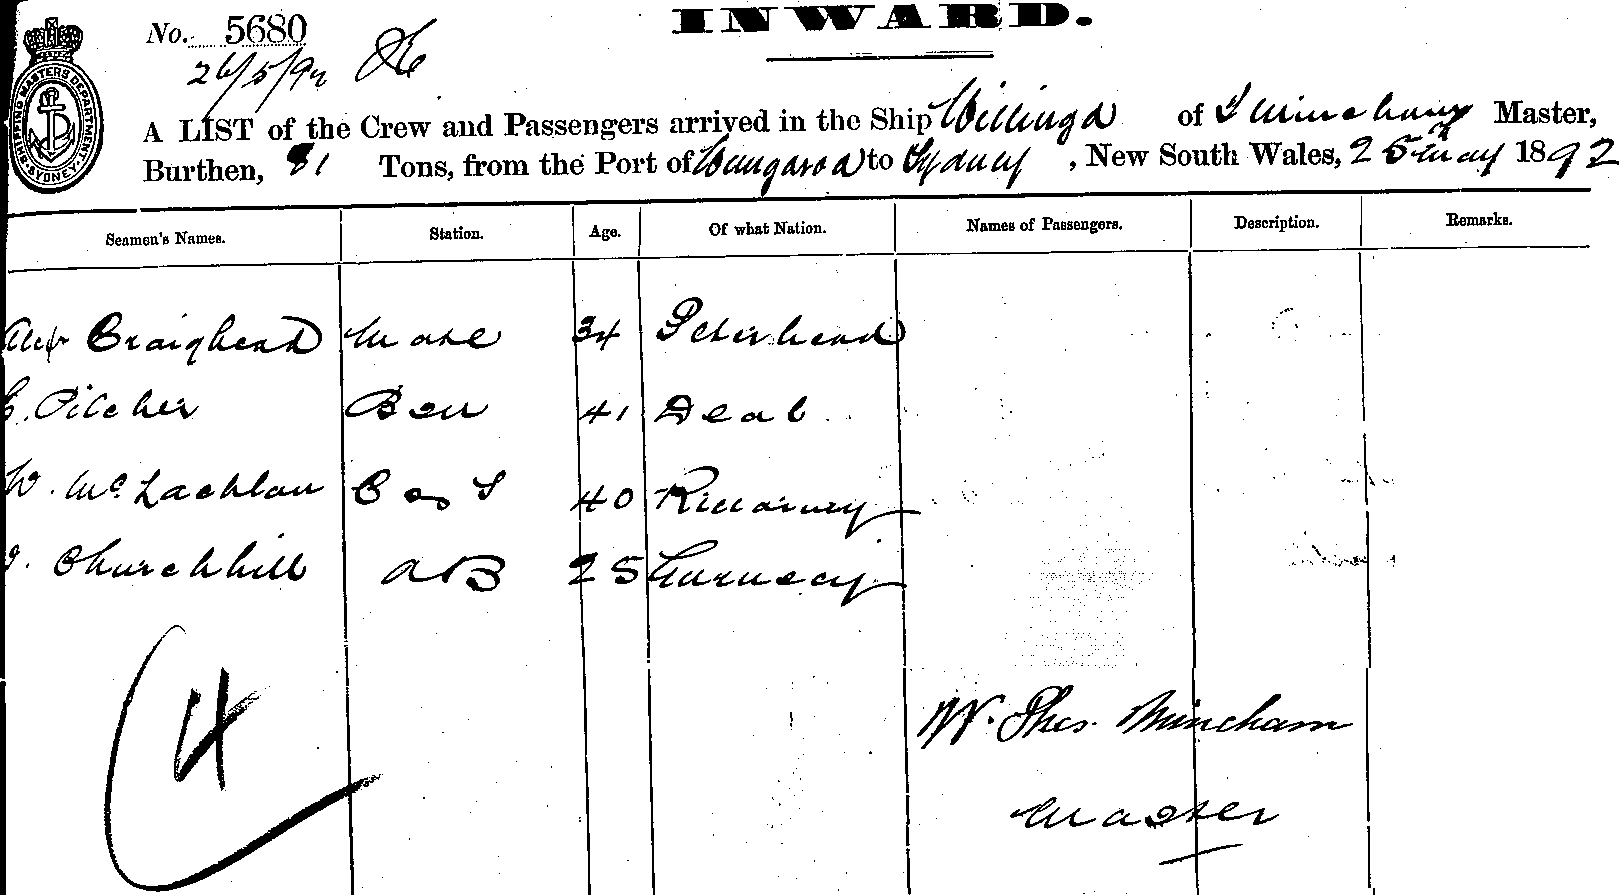 INWARD.
No. 5680
26/5/92
SHIPPING MASTERS DEPARTMENT SYDNEY
A LIST of the Crew and Passengers arrived in the Ship Willinga of T Mincham Master,
Burthen, 81 Tons, from the Port of to Sydney, New South Wales, 25th May 1892
Seamen's Names. Station. Age. Of what Nation. Names of Passengers. Description. Remarks.
Alex Craighead Mate 34 Peterhead
E. Pilcher 41 Deal
W. McLachlan C & S 40 Killarney
Churchhill AB 25 Gurnecy
4
W. Thos. Mincham
Master